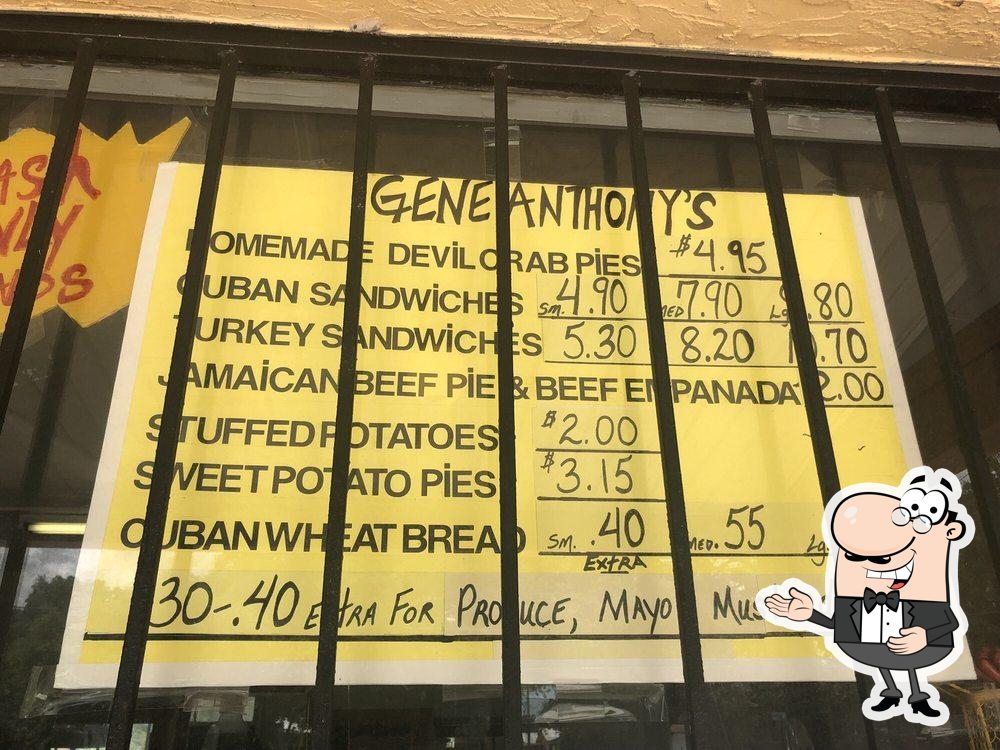 GENE ANTHONY'S
HOMEMADE DEVIL CRAB PIES $4.95
CUBAN SANDWICHES SM. 4.90 MED 7.90 Lg. .80
TURKEY SANDWICHES 5.30 8.20 10.70
JAMAICAN BEEF PIE & BEEF EMPANADA 2.00
STUFFED POTATOES $2.00
SWEET POTATO PIES $3.15
CUBAN WHEAT BREAD SM. .40 MED. .55 Lg.
EXTRA
30-.40 EXTRA FOR PRODUCE, MAYO
CASH
ONLY